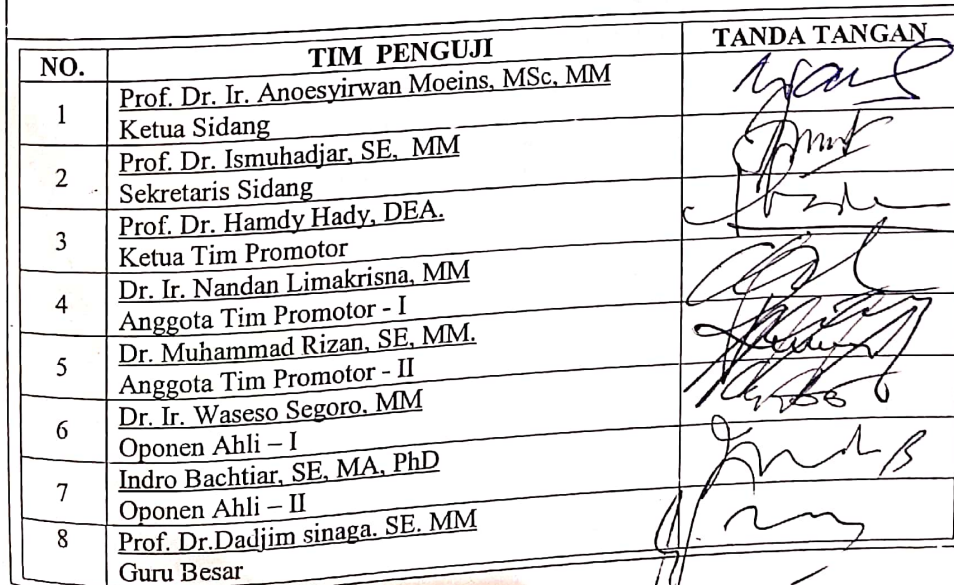 NO. TIM PENGUJI TANDA TANGAN
1 Prof. Dr. Ir. Anoesyirwan Moeins, MSc, MM
Ketua Sidang
2 Prof. Dr. Ismuhadjar, SE, MM
Sekretaris Sidang
3 Prof. Dr. Hamdy Hady, DEA.
Ketua Tim Promotor
4 Dr. Ir. Nandan Limakrisna, MM
Anggota Tim Promotor - I
5 Dr. Muhammad Rizan, SE, MM.
Anggota Tim Promotor - II
6 Dr. Ir. Waseso Segoro, MM
Oponen Ahli – I
7 Indro Bachtiar, SE, MA, PhD
Oponen Ahli – II
8 Prof. Dr.Dadjim sinaga. SE. MM
Guru Besar